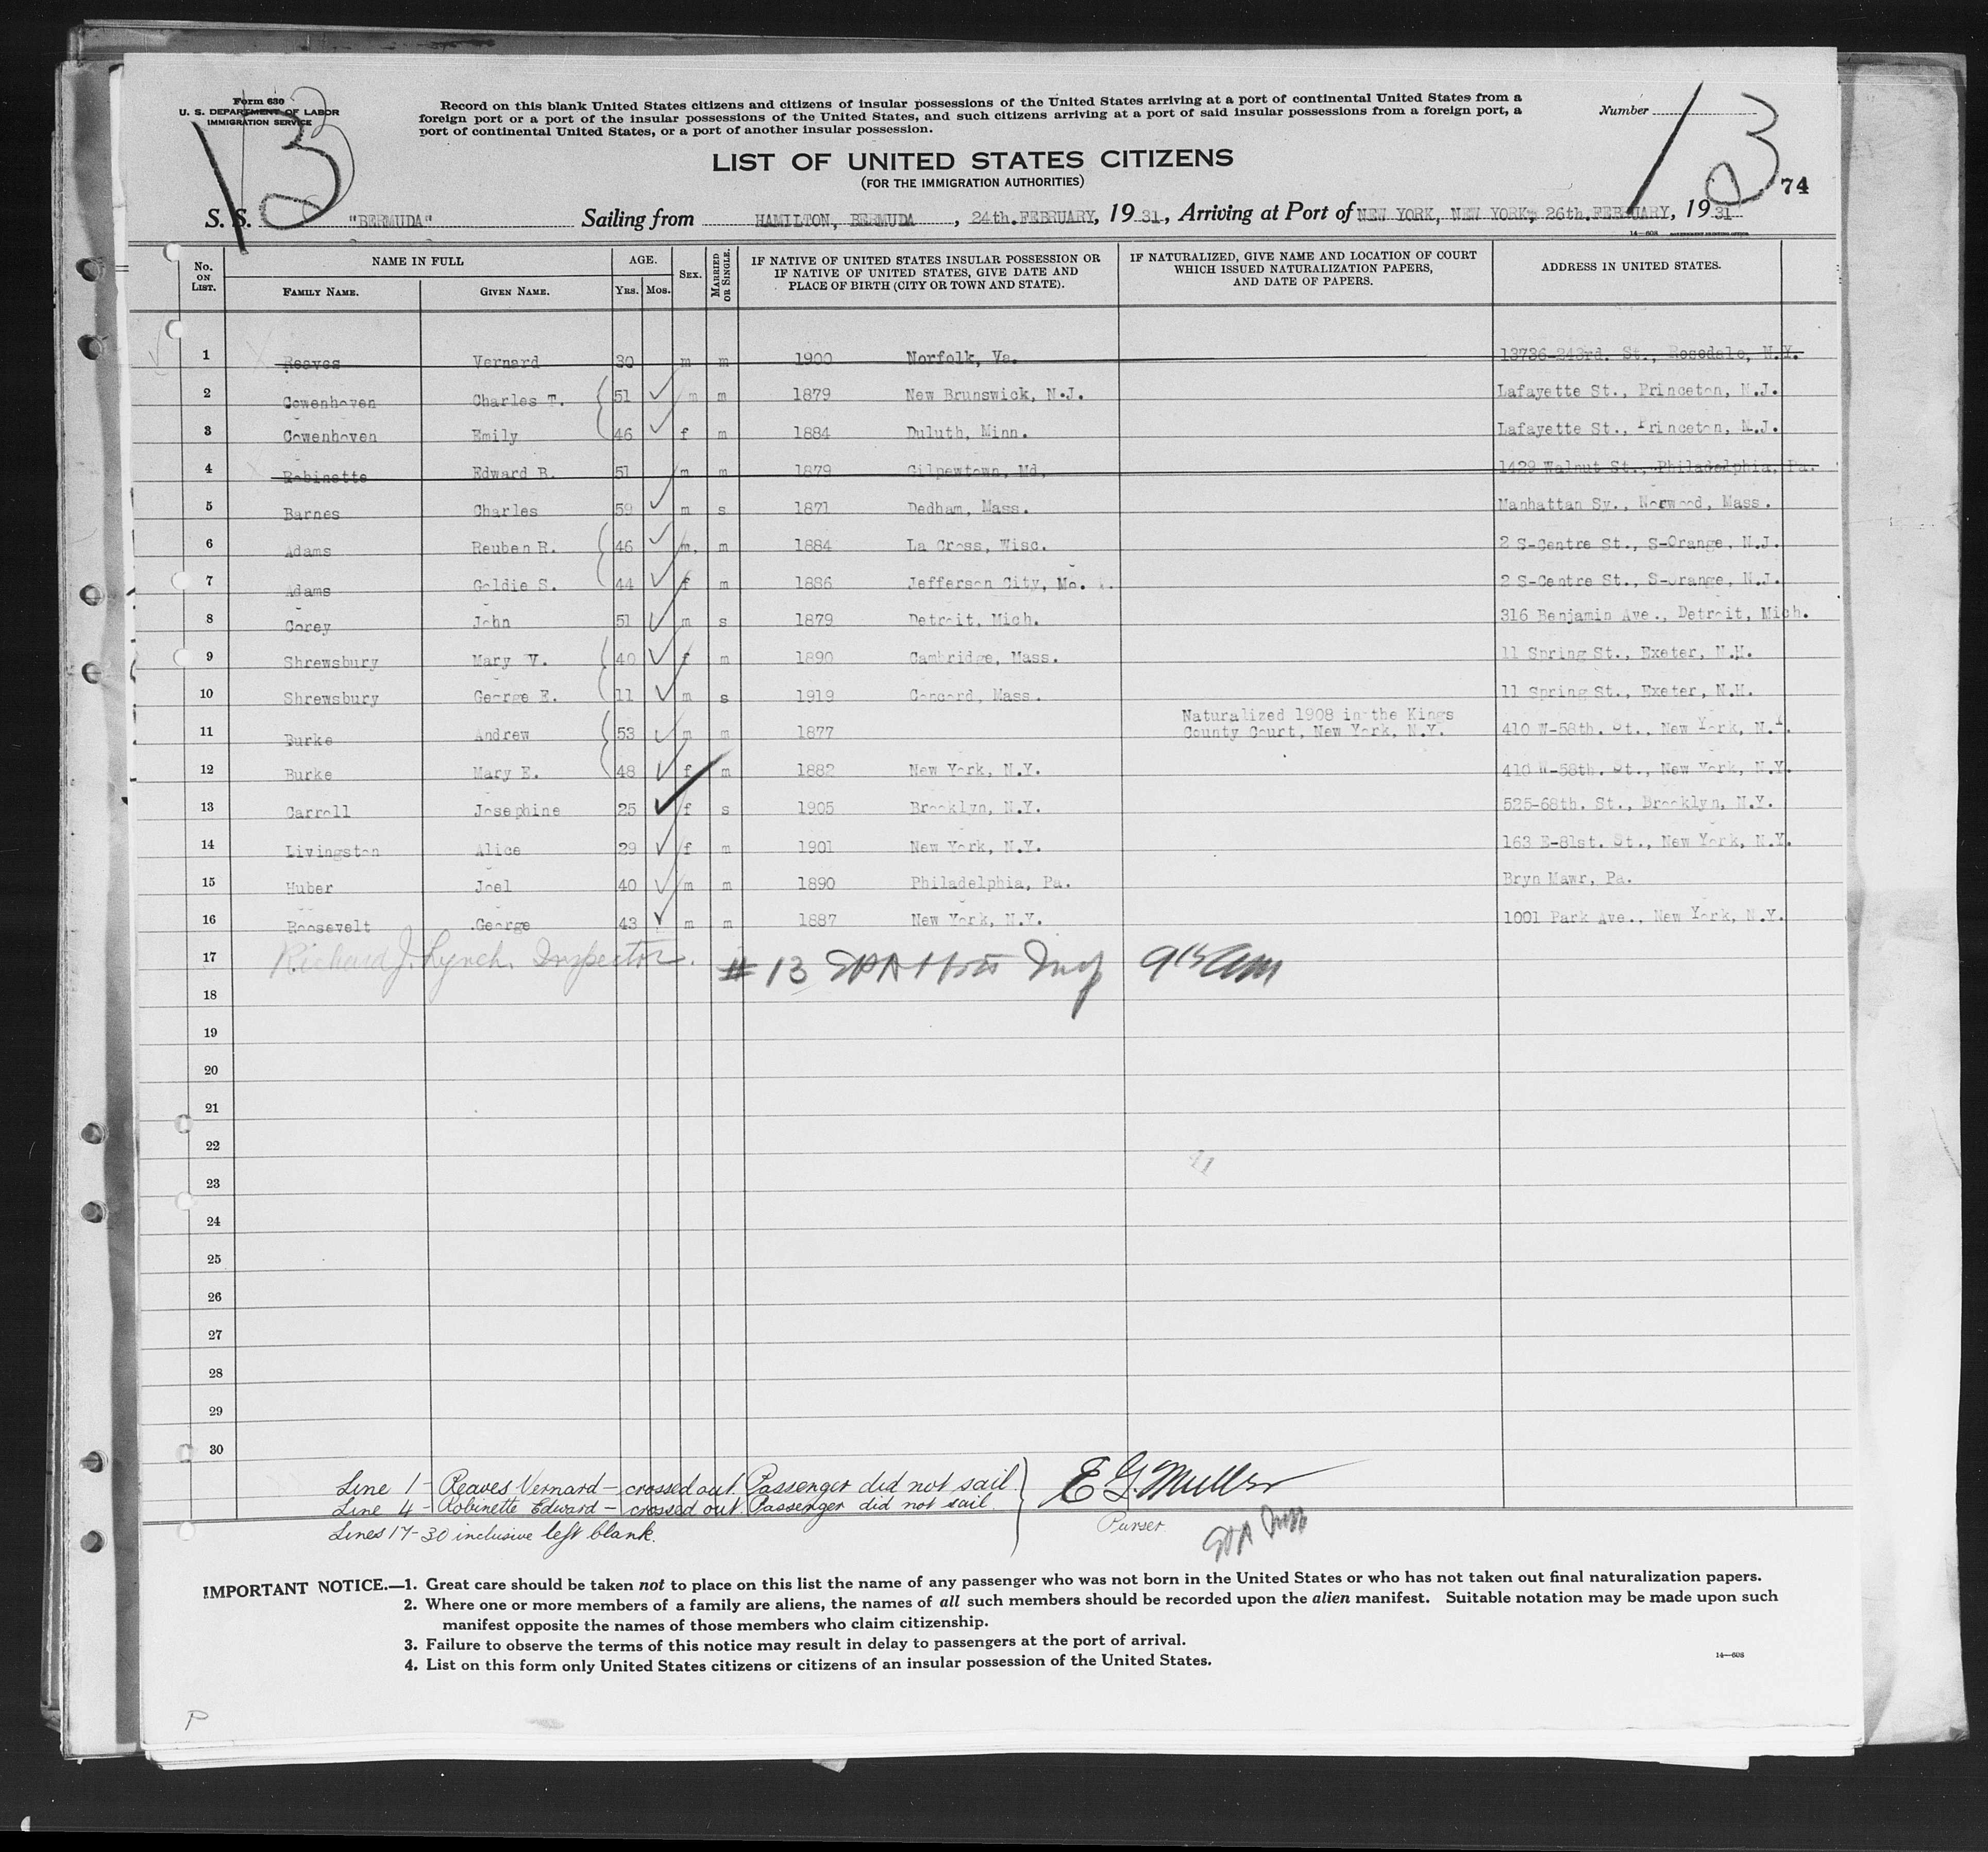 Form 630
U. S. DEPARTMENT OF LABOR
IMMIGRATION SERVICE
13
Record on this blank United States citizens and citizens of insular possessions of the United States arriving at a port of continental United States from a
foreign port or a port of the insular possessions of the United States, and such citizens arriving at a port of said insular possessions from a foreign port, a
port of continental United States, or a port of another insular possession.
Number
13
74
LIST OF UNITED STATES CITIZENS
(FOR THE IMMIGRATION AUTHORITIES)
S. S. "BERMUDA" Sailing from HAMILTON, BERMUDA, 24th. FEBRUARY, 1931., Arriving at Port of NEW YORK, NEW YORK, 26th. FEBRUARY, 1931
14—608 GOVERNMENT PRINTING OFFICE
No. ON LIST. NAME IN FULL FAMILY NAME. GIVEN NAME. AGE. YRS. MOS. SEX. MARRIED OR SINGLE. IF NATIVE OF UNITED STATES INSULAR POSSESSION OR IF NATIVE OF UNITED STATES, GIVE DATE AND PLACE OF BIRTH (CITY OR TOWN AND STATE). IF NATURALIZED, GIVE NAME AND LOCATION OF COURT WHICH ISSUED NATURALIZATION PAPERS, AND DATE OF PAPERS. ADDRESS IN UNITED STATES.
1 Reaves Vernard 30 m m 1900 Norfolk, Va. 13736-243rd. St., Rosedale, N.Y.
2 Cowenhoven Charles T. 51 m m 1879 New Brunswick, N.J. Lafayette St., Princeton, N.J.
3 Cowenhoven Emily 46 f m 1884 Duluth, Minn. Lafayette St., Princeton, N.J.
4 Robinette Edward R. 51 m m 1879 Gilpewtown, Md. 1429 Walnut St., Philadelphia, Pa.
5 Barnes Charles 59 m s 1871 Dedham, Mass. Manhattan Sy., Norwood, Mass.
6 Adams Reuben R. 46 m. m 1884 La Cross, Wisc. 2 S-Centre St., S-Orange, N.J.
7 Adams Goldie S. 44 f m 1886 Jefferson City, Mo. 2 S-Centre St., S-Orange, N.J.
8 Corey John 51 m s 1879 Detroit, Mich. 316 Benjamin Ave., Detroit, Mich.
9 Shrewsbury Mary V. 40 f m 1890 Cambridge, Mass. 11 Spring St., Exeter, N.H.
10 Shrewsbury George E. 11 m s 1919 Concord, Mass. 11 Spring St., Exeter, N.H.
11 Burke Andrew 53 m m 1877 Naturalized 1908 in the Kings County Court, New York, N.Y. 410 W-58th. St., New York, N.Y.
12 Burke Mary E. 48 f m 1882 New York, N.Y. 410 W-58th. St., New York, N.Y.
13 Carroll Josephine 25 f s 1905 Brooklyn, N.Y. 525-68th. St., Brooklyn, N.Y.
14 Livingston Alice 29 f m 1901 New York, N.Y. 163 E-81st. St., New York, N.Y.
15 Huber Joel 40 m m 1890 Philadelphia, Pa. Bryn Mawr, Pa.
16 Roosevelt George 43 m m 1887 New York, N.Y. 1001 Park Ave., New York, N.Y.
17 Richard J. Lynch. Inspector. # 13
18
19
20
21
22
23
24
25
26
27
28
29
30
Line 1 - Reaves Vernard - crossed out. Passenger did not sail
Line 4 - Robinette Edward - crossed out. Passenger did not sail.
Lines 17-30 inclusive left blank.
E G. Muller
Purser
IMPORTANT NOTICE.—1. Great care should be taken not to place on this list the name of any passenger who was not born in the United States or who has not taken out final naturalization papers.
2. Where one or more members of a family are aliens, the names of all such members should be recorded upon the alien manifest. Suitable notation may be made upon such
manifest opposite the names of those members who claim citizenship.
3. Failure to observe the terms of this notice may result in delay to passengers at the port of arrival.
4. List on this form only United States citizens or citizens of an insular possession of the United States.
14—608
P